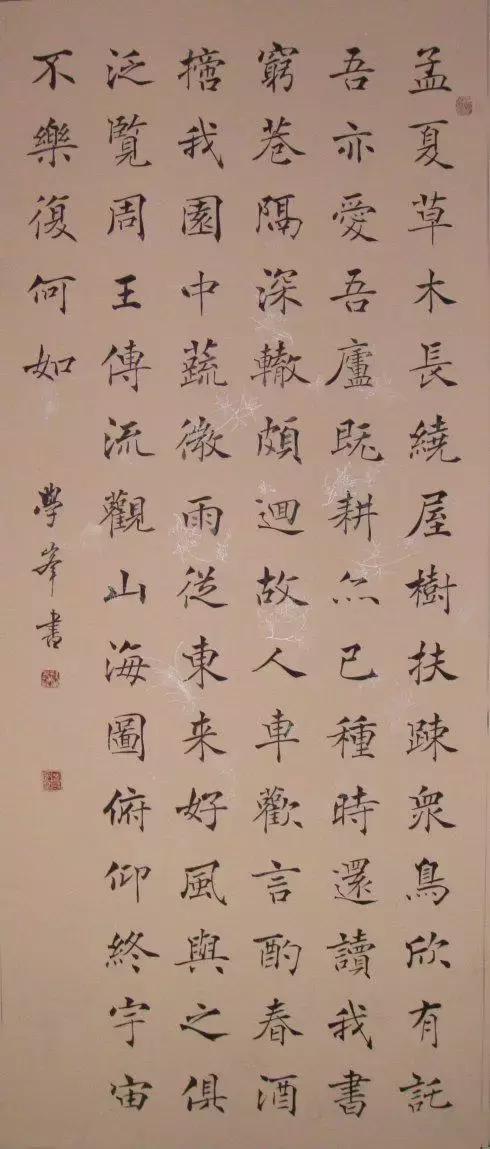 孟夏草木長繞屋樹扶疎衆鳥欣有託
吾亦愛吾廬既耕亦已種時還讀我書
窮巷隔深轍頗迴故人車歡言酌春酒
摘我園中蔬微雨從東来好風與之俱
泛覽周王傳流觀山海圖俯仰終宇宙
不樂復何如
學峯書